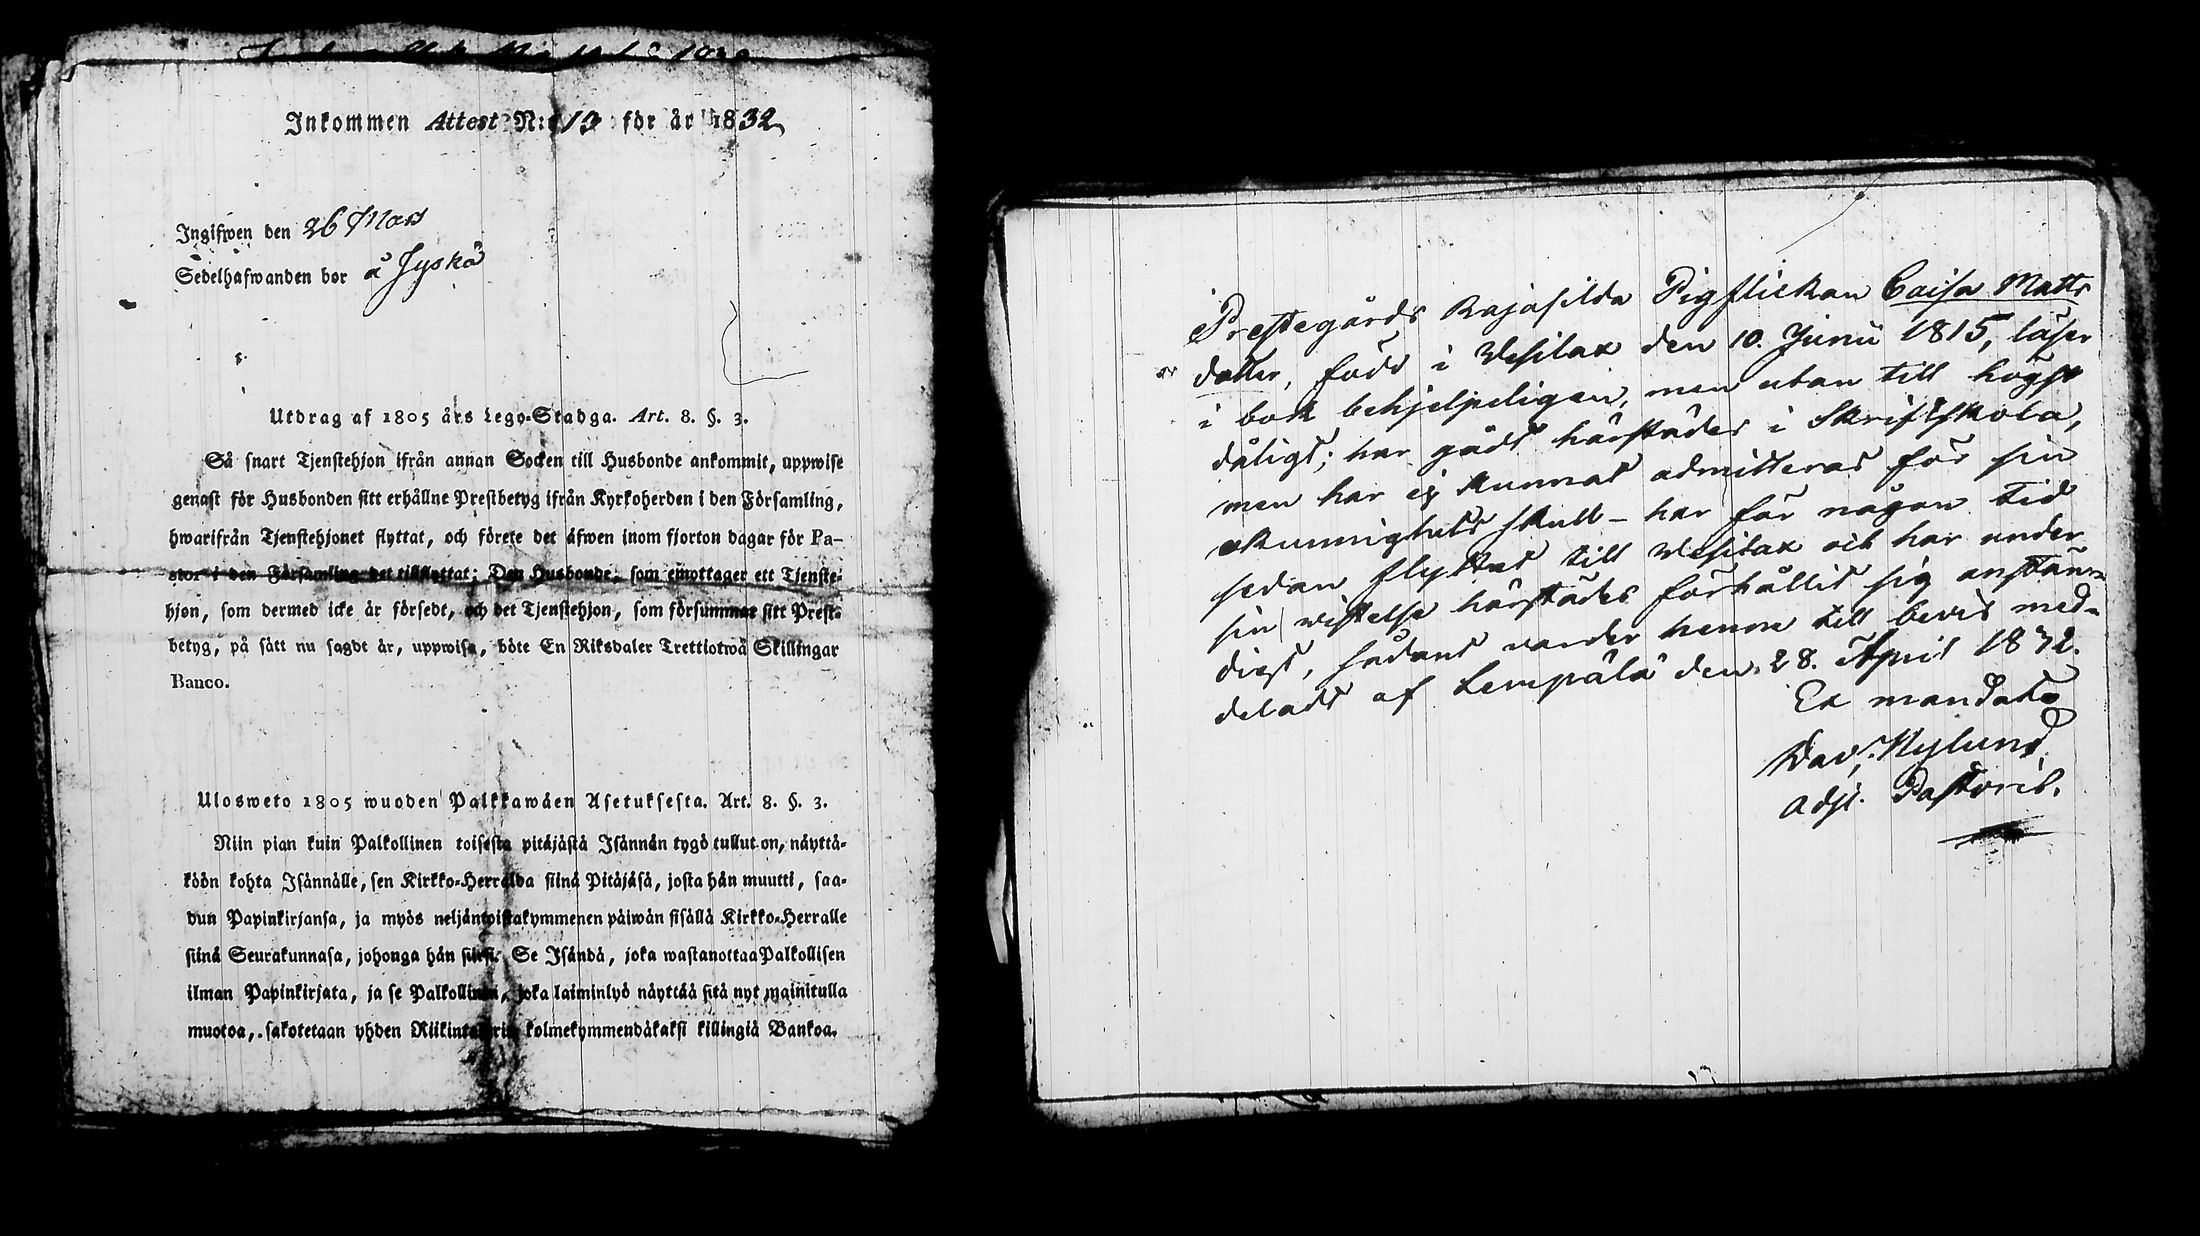 Inkommen Attest N:o 13 för år 1832
Ingifwen den 26 Mars
Sedelhafwanden bor å Jyskä
Utdrag af 1805 års Lego-Stadga. Art. 8. §. 3.
Så snart Tjenstehjon ifrån annan Socken till Husbonde ankommit, uppwise
genast för Husbonden sitt erhållne Prestbetyg ifrån Kyrkoherden i den Församling,
hwarifrån Tjenstehjonet flyttat, och förete det äfwen inom fjorton dagar för Pa-
stor i den Församling det tillflyttat; Den Husbonde, som emottager ett Tjenste-
hjon, som dermed icke är försedt, och det Tjenstehjon, som försummar sitt Prest-
betyg, på sätt nu sagdt är, uppwisa, böte En Riksdaler Trettiotwå Skillingar
Banco.
Ulosweto 1805 wuoden Palkkawäen Asetuksesta. Art. 8. §. 3.
Niin pian kuin Palkollinen toisesta pitäjästä Isännän tygö tullut on, näyttä-
köön kohta Isännälle, sen Kirkko-Herralda siinä Pitäjäsä, josta hän muutti, saa-
dun Papinkirjansa, ja myös neljäntoistakymmenen päiwän sisällä Kirkko-Herralle
siinä Seurakunnasa, johonga hän siirsi. Se Isändä, joka wastanottaa Palkollisen
ilman Papinkirjata, ja se Palkollinen, joka laiminlyö näyttää sitä nyt mainitulla
muotoa, sakotetaan yhden Riikintalarin kolmekymmendäkaksi killingiä Bankoa.
Prestegårds Pigflickan Caisa Matts
dotter, född i Wesilax den 10. Junii 1815, läser
i bok behjelpeligen, men utan till högst
dåligt; har gådt härstädes i Skriftskola,
men har ej kunnat admitteras för sin
okunnighets skull - har för någon tid
sedan flyttat till Wesilax och har under
sin wistelse härstädes förhållit sig anstän-
digt, sådant warder henne till bevis med-
deladt af Lempälä den 28. April 1832.
Ex mandato
Dav. Nylund
Adj. Pastoris.